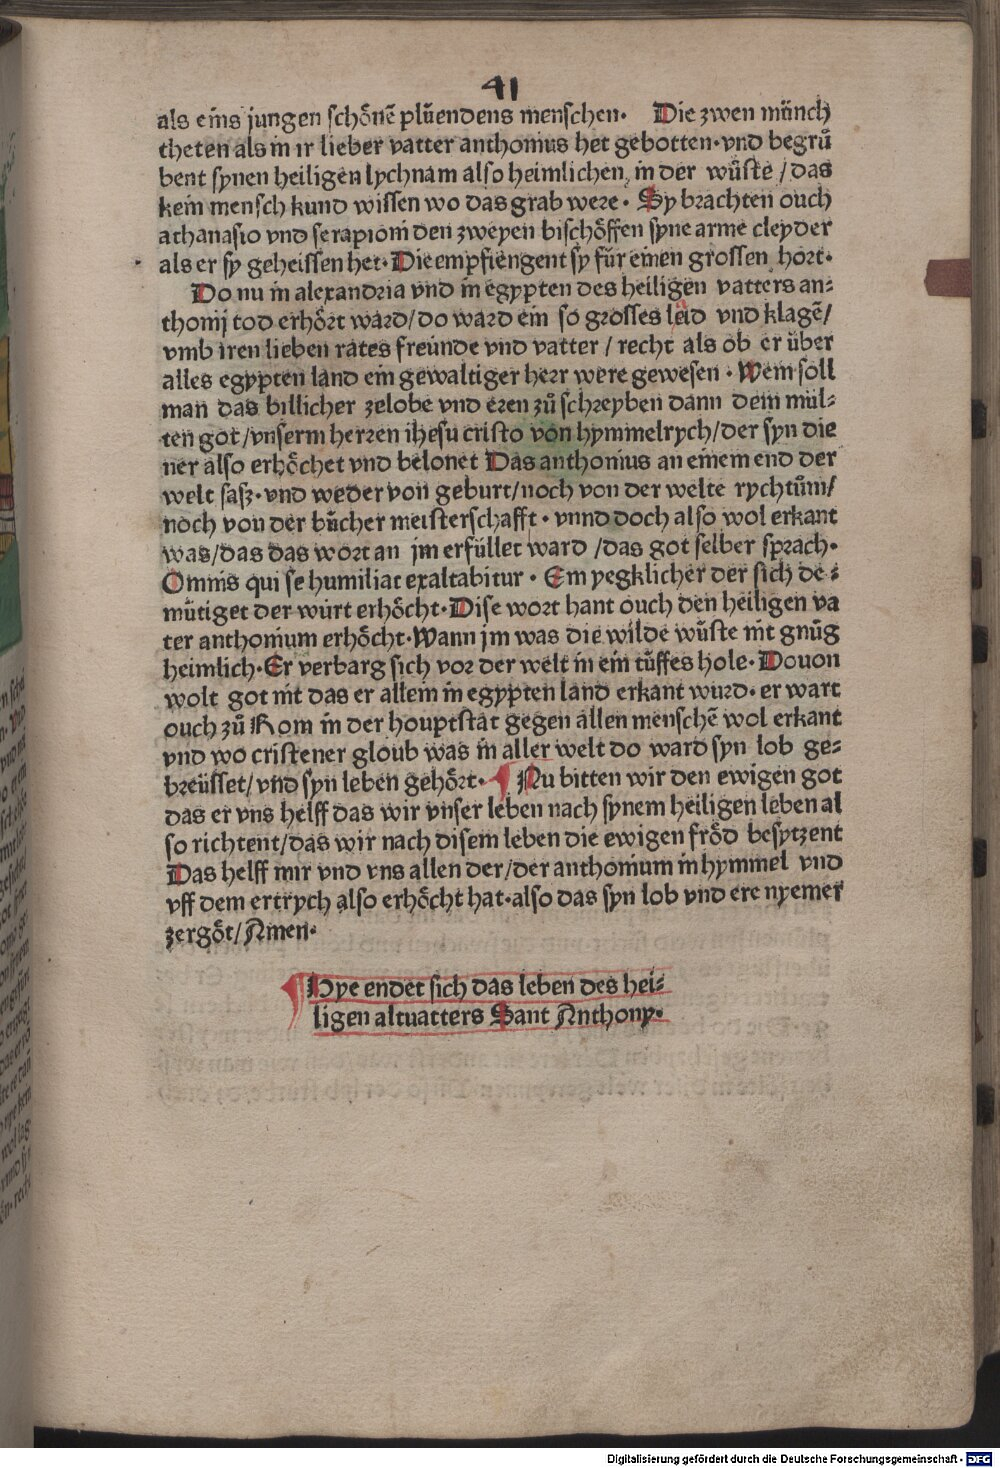 41
als eins jungen schoͤnē pluͤendens menschen· Die zwen muͤnch
theten als in ir lieber vatter anthonius het gebotten·vnd begruͦ
bent synen heiligen lychnam also heimlichen, in der wuͤste /das
kein mensch kund wissen wo das grab were· Sy brachten ouch
athanasio vnd serapioni den zweyen bischoͤffen syne arme cleyder
als er sy geheissen het· Die empfiengent sy fuͤr einen grossen hort·
Do nu in alexandria vnd in egypten des heiligen vatters an⸗
thonij tod erhoͤrt ward/do ward ein so grosses leid vnd klagē/
vmb iren lieben rates freünde vnd vatter / recht als ob er über
alles egypten land ein gewaltiger herr were gewesen · Wem soll
man das billicher zelobe vnd eren zuͦ schreyben dann dem mil⸗
ten got/vnserm herren ihesu cristo von hymmelrych/der syn die
ner also erhoͤchet vnd belonet Das anthonius an einem end der
welt sasz·vnd weder von geburt/noch von der welte rychtuͦm/
noch von der buͤcher meisterschafft· vnnd doch also wol erkant
was/das das wort an jm erfüllet ward /das got selber sprach·
Omnis qui se humiliat exaltabitur · Ein yegklicher der sich de⸗
muͤtiget der würt erhoͤcht· Dise wort hant ouch den heiligen va
ter anthonium erhoͤcht· Wann jm was die wilde wuͤste nit gnuͦg
heimlich· Er verbarg sich vor der welt in ein tüffes hole· Dovon
wolt got nit das er allein in egypten land erkant wurd· er wart
ouch zuͦ Rom in der houptstat gegen allen menschē wol erkant
vnd wo cristener gloub was in aller welt do ward syn lob ge⸗
breüsset/vnd syn leben gehoͤrt· ¶ Nu bitten wir den ewigen got
das er vns helff das wir vnser leben nach synem heiligen leben al
so richtent/das wir nach disem leben die ewigen froͤd besytzent
Das helff mir vnd vns allen der/der anthonium in hymmel vnd
vff dem ertrych also erhoͤcht hat·also das syn lob vnd ere nyemer
zergoͤt/Amen·
¶ Hye endet sich das leben des hei⸗
ligen altuatters Sant Anthony·
Digitalisierung gefördert durch die Deutsche Forschungsgemeinschaft - DFG